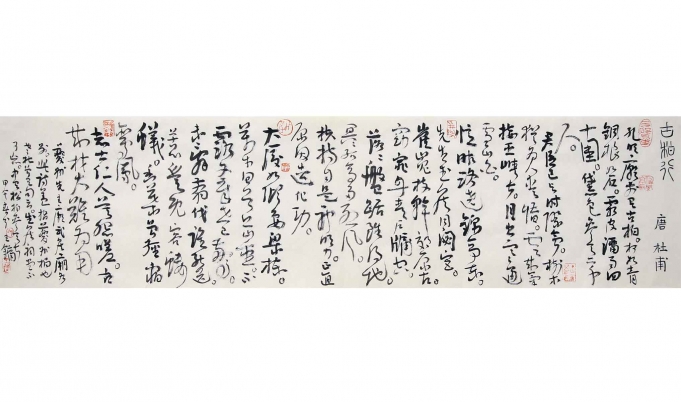 古柏行 唐 杜甫
孔明廟前有老柏。柯如青
銅根如石。霜皮溜雨四
十圍。黛色參天二千
尺。
君臣已與時際會。樹木
猶為人愛惜。雲來氣
接巫峽長。月出寒通
雪山白。
憶昨路繞錦亭東。
先主武侯同閟宮。
崔嵬枝幹郊原古。
窈窕丹青戶牖空。
落落盤踞雖得地。
冥冥孤高多烈風。
扶持自是神明力正直
原因造化功。
大廈如傾要梁棟。
萬牛回首丘山重。不
露文章世已驚。
未辭剪伐誰能送。
苦心豈免容螻
蟻。香葉曾經宿
鸞鳳。
志士仁人莫怨嗟。古
來材大難為用